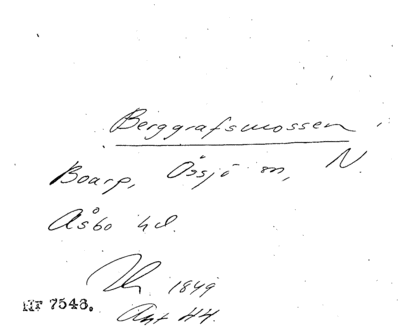 Berggrafsmossen
Boarp, Össjö sn, N.
Åsbo hd.
1849
NF 7543. Akt 44.